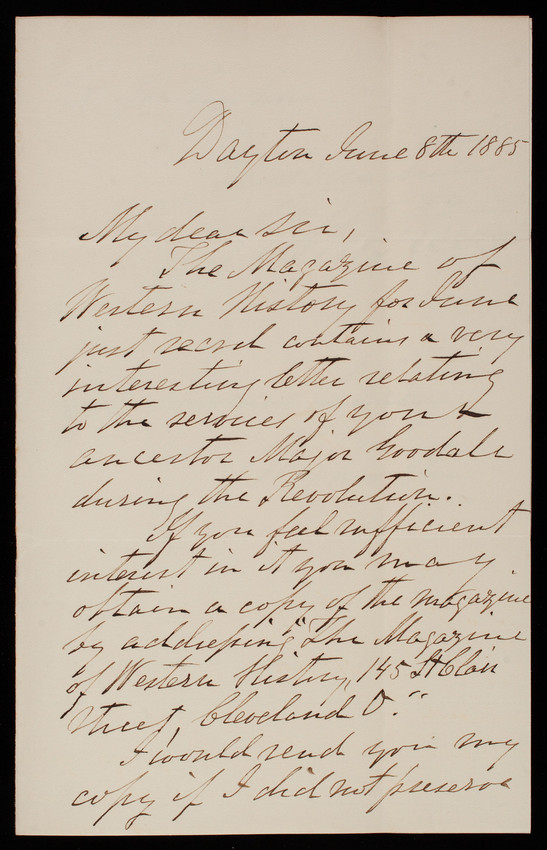 Dayton June 8th 1885
My dear Sir,
The Magazine of
Western History for June
just recvd contains a very
interesting letter relating
to the services of your
ancestor Major Goodale
during the Revolution.
If you feel sufficient
interest in it you may
obtain a copy of the magazine
by addressing "The Magazine
of Western History, 145 St Clair
Street, Cleveland O."
I would send you my
copy if I did not preserve